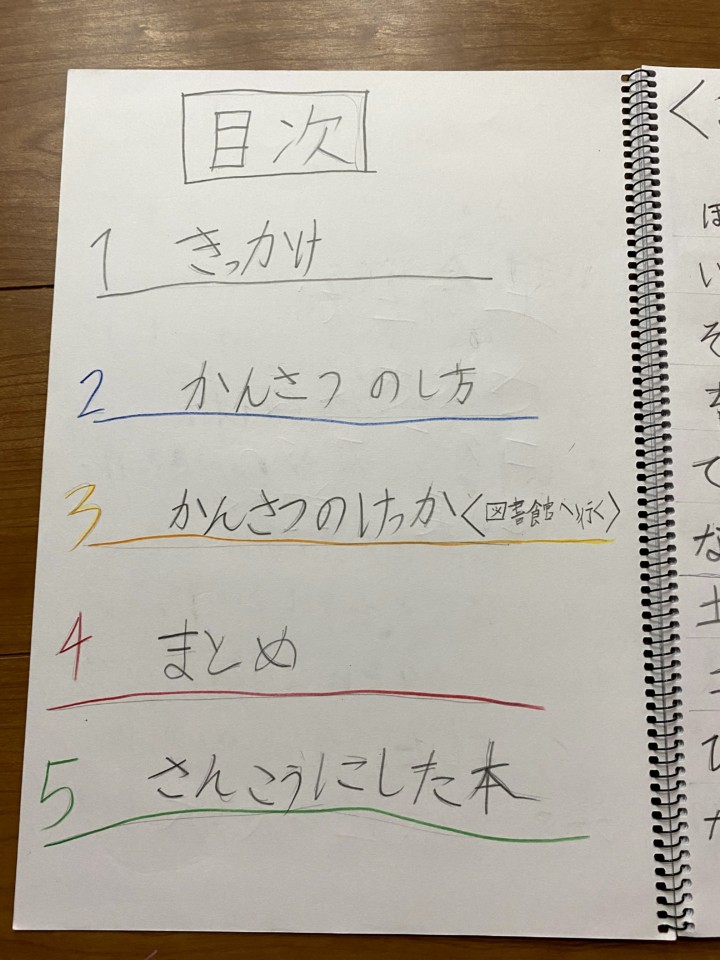 目次
1 きっかけ
2 かんさつのし方
3 かんさつのけっか〈図書館へ行く〉
4 まとめ
5 さんこうにした本
〈
ほ
い
そ
て
な
土
ひ